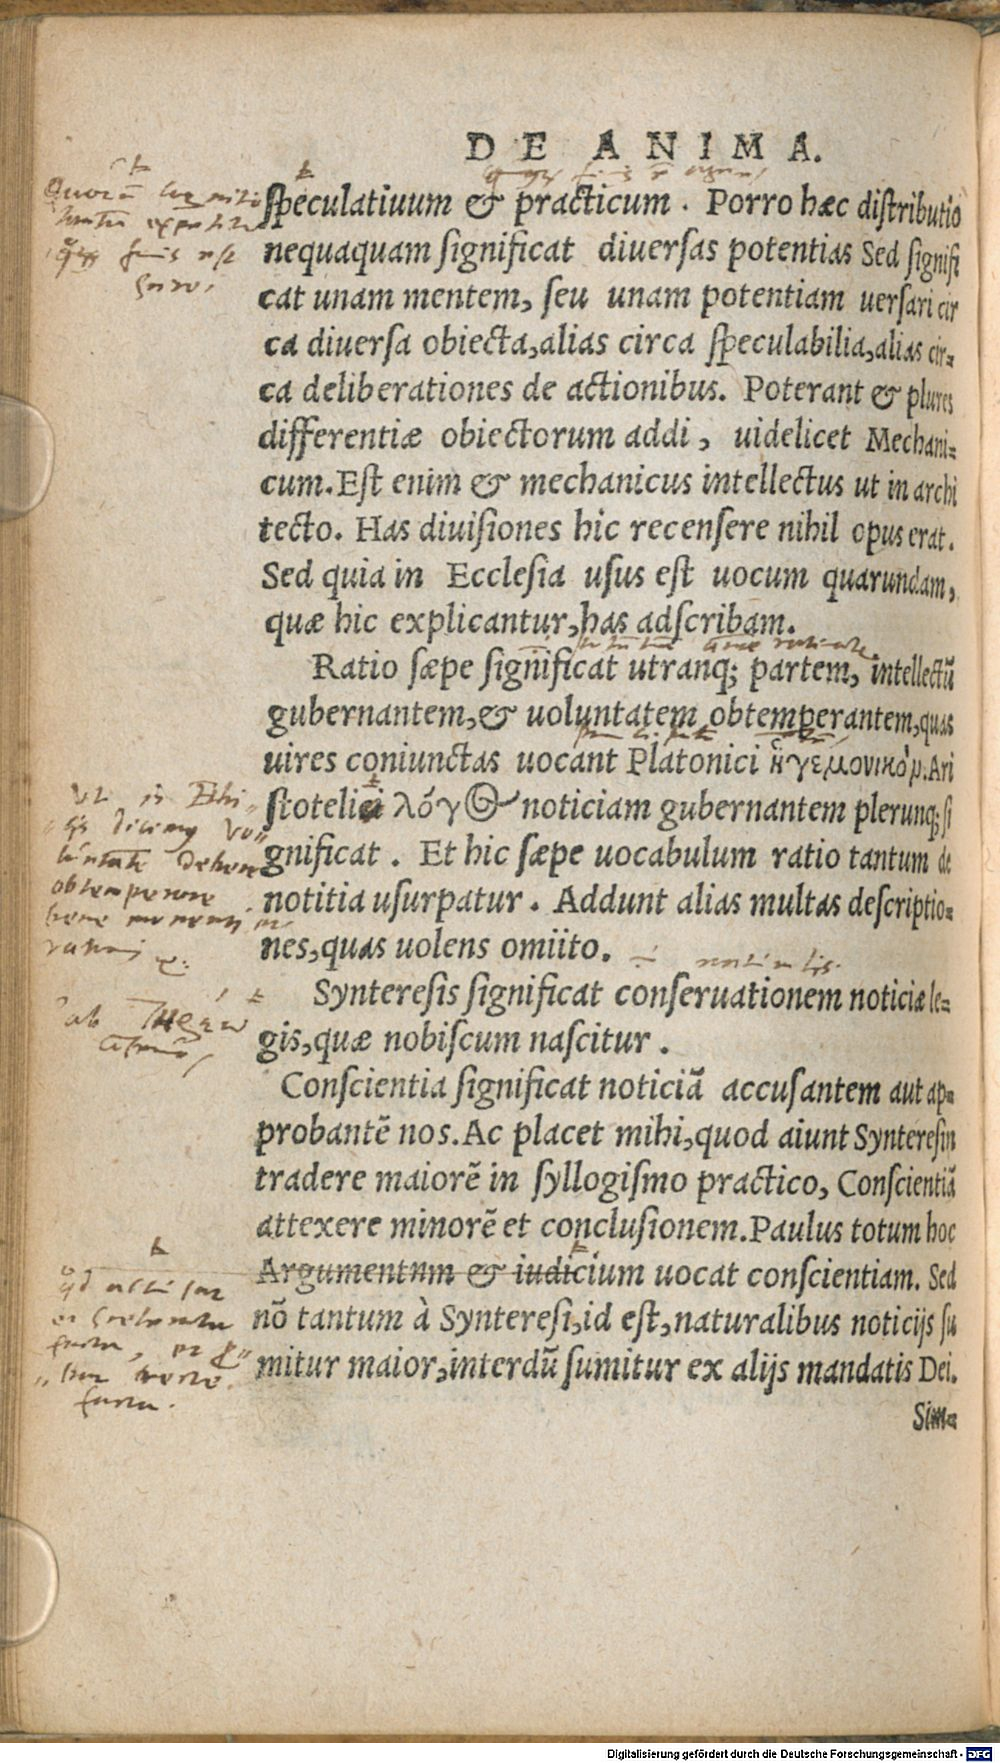 DE ANIMA.
speculatiuum & practicum. Porro hæc distributio
nequaquam significat diuersas potentias Sed signifi
cat unam mentem, seu unam potentiam uersari cir
ca diuersa obiecta, alias circa speculabilia, alias cir=
ca deliberationes de actionibus. Poterant & plures
differentiæ obiectorum addi, uidelicet Mechani=
cum. Est enim & mechanicus intellectus ut in archi
tecto. Has diuisiones hic recensere nihil opus erat.
Sed quia in Ecclesia usus est uocum quarundam,
quæ hic explicantur, has adscribam.
Ratio sæpe significat utranq; partem, intellectũ
gubernantem, & uoluntatem obtemperantem, quas
uires coniunctas uocant Platonici ἡγεμονικὸν. Ari
stotelici λόγος noticiam gubernantem plerunq; si
gnificat. Et hic sæpe uocabulum ratio tantum de
notitia usurpatur. Addunt alias multas descriptio=
nes, quas uolens omiito.
Synteresis significat conseruationem noticiæ le=
gis, quæ nobiscum nascitur.
Conscientia significat noticiã accusantem aut ap=
probantẽ nos. Ac placet mihi, quod aiunt Synteresin
tradere maiorẽ in syllogismo practico, Conscientiã
attexere minorẽ et conclusionem. Paulus totum hoc
Argumentum & iudicium uocat conscientiam. Sed
nõ tantum à Synteresi, id est, naturalibus noticijs su
mitur maior, interdũ sumitur ex alijs mandatis Dei.
Sim=
obtemperare
Digitalisierung gefördert durch die Deutsche Forschungsgemeinschaft - DFG